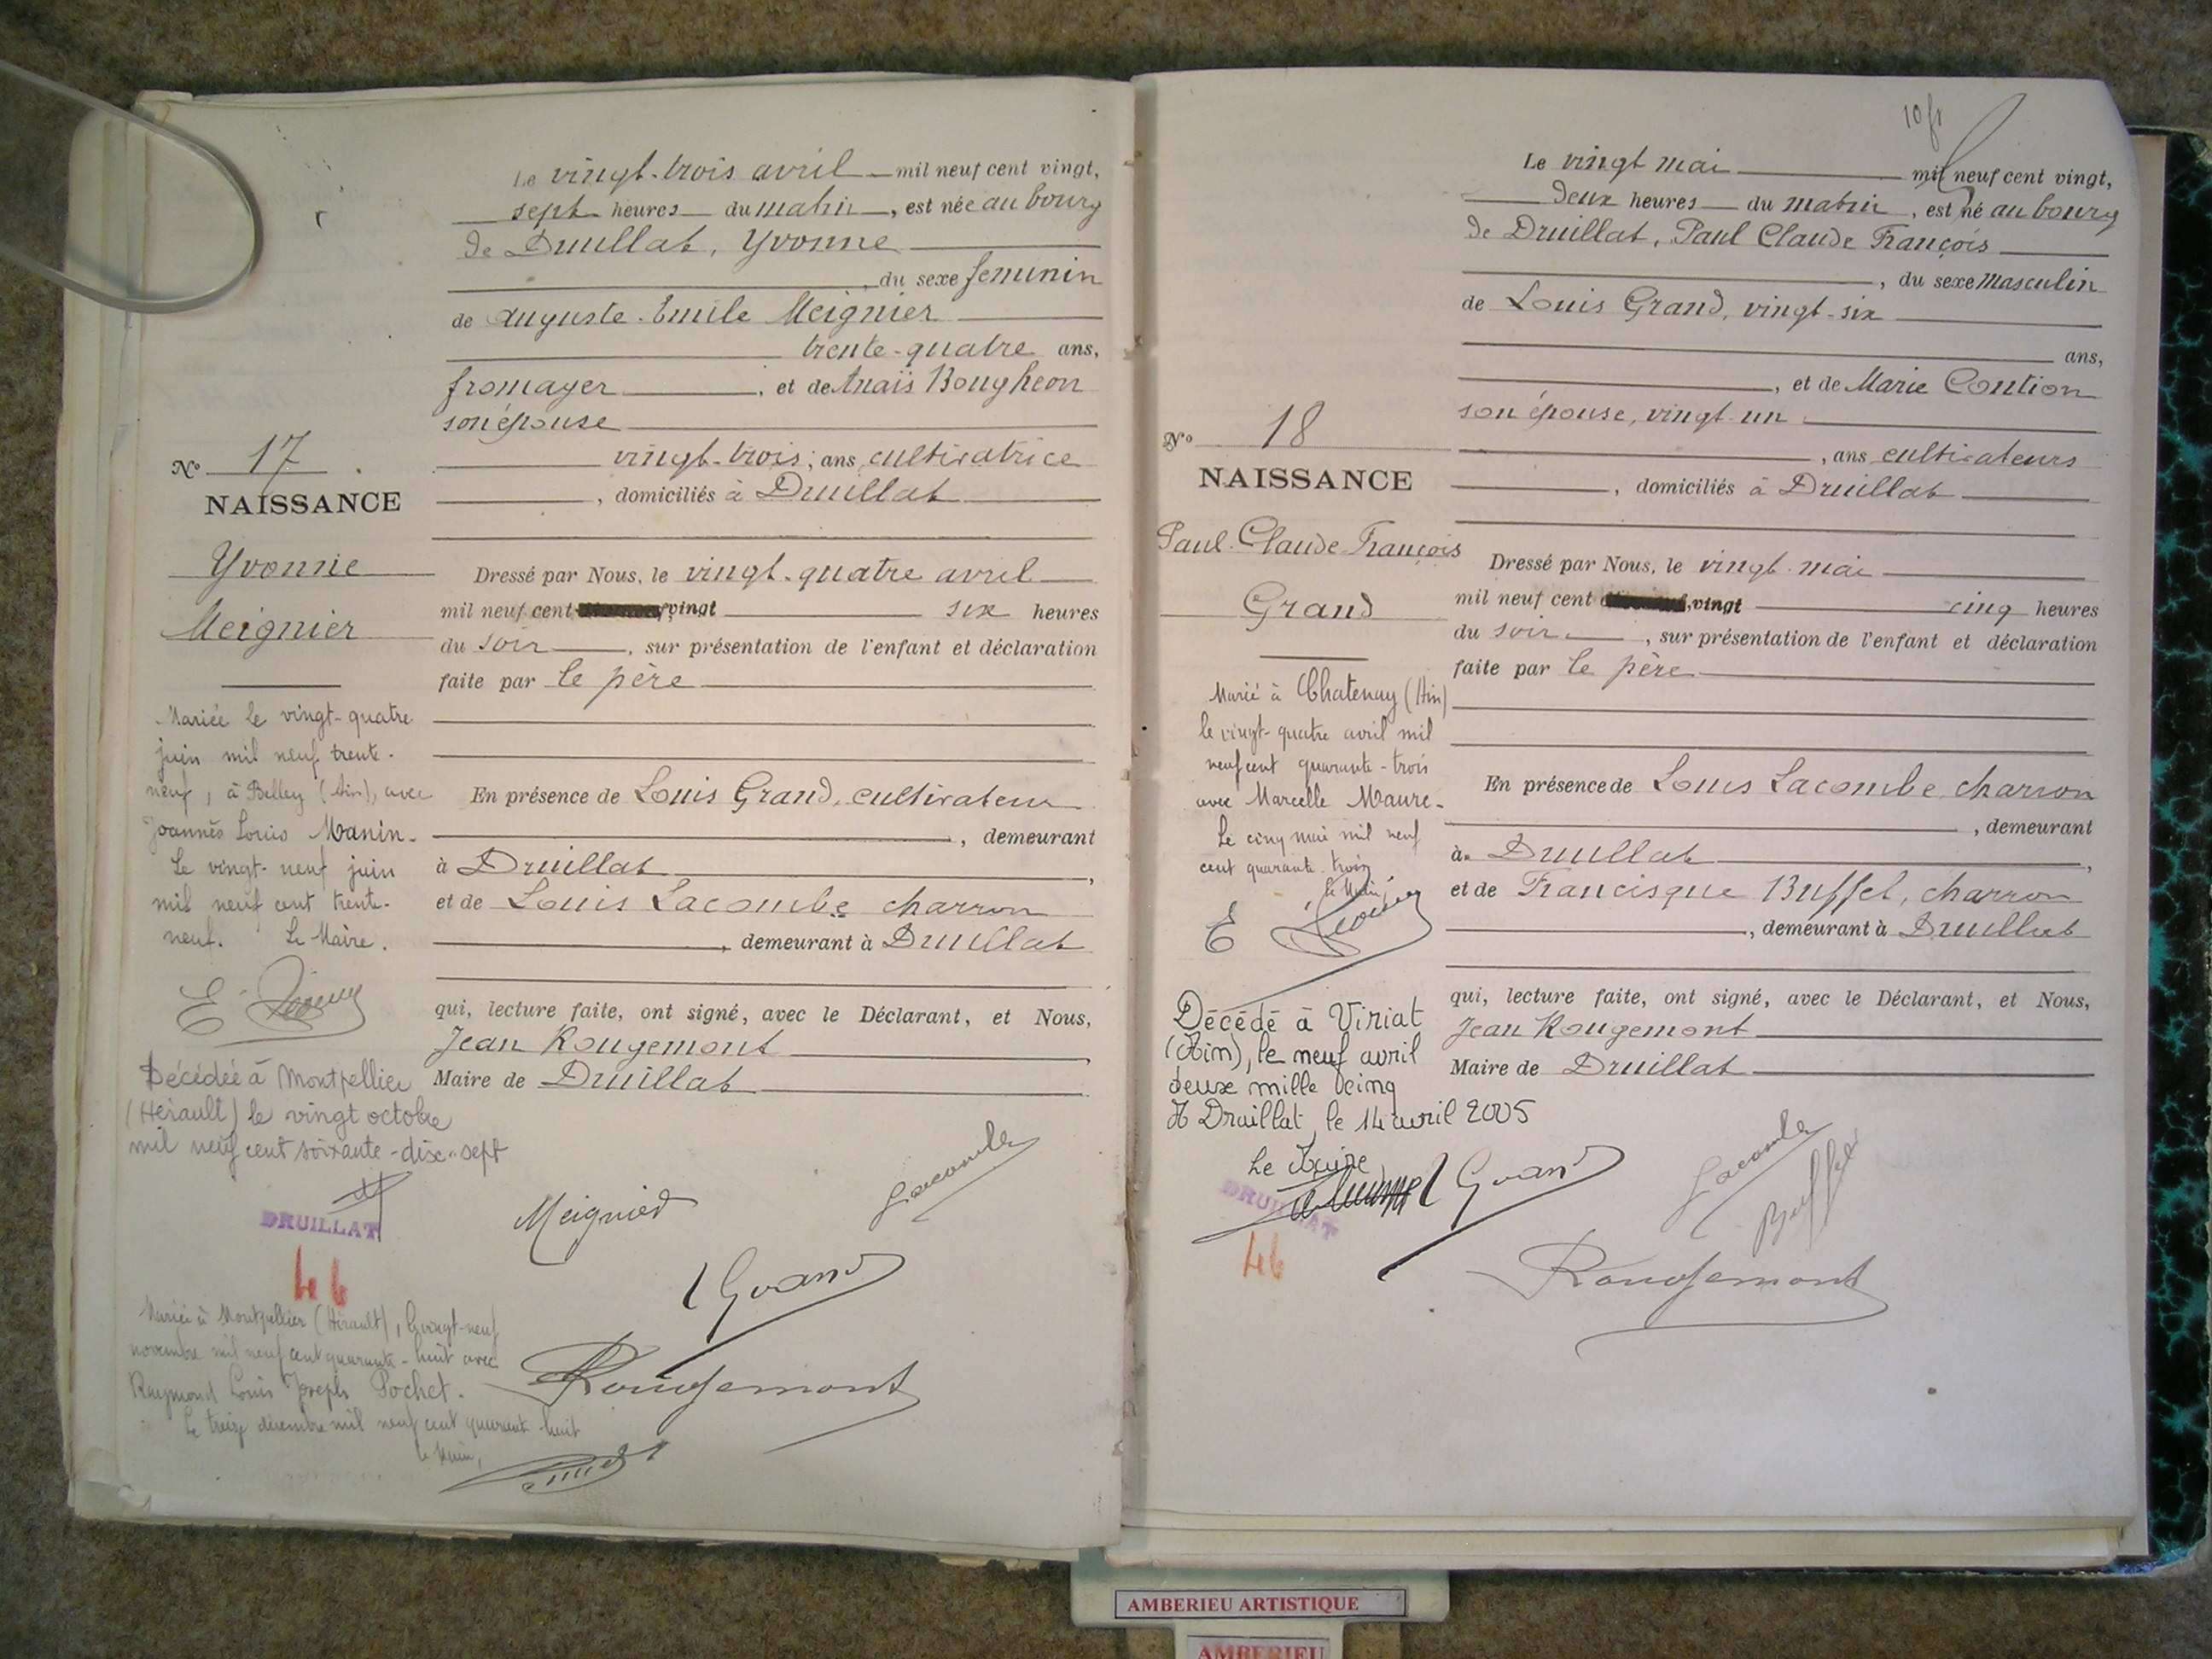 Le vingt-trois avril mil neuf cent vingt,
sept heures du matin, est née au bourg
de Druillat, Yvonne
, du sexe feminin
de Auguste Emile Meignier
trente-quatre ans,
fromager, et de Anaïs Bougheon
son épouse
vingt-trois; ans, cultivatrice
, domiciliés à Druillat
N° 17
NAISSANCE
Yvonne
Meignier
Dressé par Nous, le vingt-quatre avril
mil neuf cent vingt six heures
du soir, sur présentation de l'enfant et déclaration
faite par le père
Mariée le vingt-quatre
juin mil neuf trente-
neuf, à Belley (Ain), avec
Joannès Louis Manin.
Le vingt-neuf juin
mil neuf cent trente-
neuf. Le Maire.
En présence de Louis Grand, cultivateur
, demeurant
à Druillat,
et de Louis Lacombe charron
, demeurant à Druillat
qui, lecture faite, ont signé, avec le Déclarant, et Nous,
Jean Rougemont,
Maire de Druillat
Décédée à Montpellier
(Hérault) le vingt octobre
mil neuf cent soixante-dix-sept
DRUILLAT
46
Meignier
Lacombe
L Grand
Rougemont
Mariée à Montpellier (Hérault), le vingt-neuf
novembre mil neuf cent quarante-huit avec
Raymond Louis Joseph Pochet.
Le treize décembre mil neuf cent quarante-huit
le Maire,
10 fr
Le vingt mai mil neuf cent vingt,
deux heures du matin, est né au bourg
de Druillat, Paul Claude François
, du sexe masculin
de Louis Grand, vingt-six
ans,
, et de Marie Contion
son épouse, vingt-un
, ans cultivateurs
, domiciliés à Druillat
N° 18
NAISSANCE
Paul-Claude-François
Grand
Dressé par Nous, le vingt mai
mil neuf cent vingt cinq heures
du soir, sur présentation de l'enfant et déclaration
faite par le père
Marié à Chatenay (Ain)
le vingt-quatre avril mil
neuf cent quarante-trois
avec Marcelle Maure.
Le cinq mai mil neuf
cent quarante-trois
Le Maire,
En présence de Louis Lacombe, charron
, demeurant
à Druillat,
et de Francisque Buffet, charron
, demeurant à Druillat
qui, lecture faite, ont signé, avec le Déclarant, et Nous,
Jean Rougemont,
Maire de Druillat
Décédé à Viriat
(Ain), le neuf avril
deux mille cinq
A Druillat, le 14 avril 2005
Le Maire
DRUILLAT
46
L Grand
Lacombe
Buffet
Rougemont
AMBERIEU ARTISTIQUE
AMBERIEU